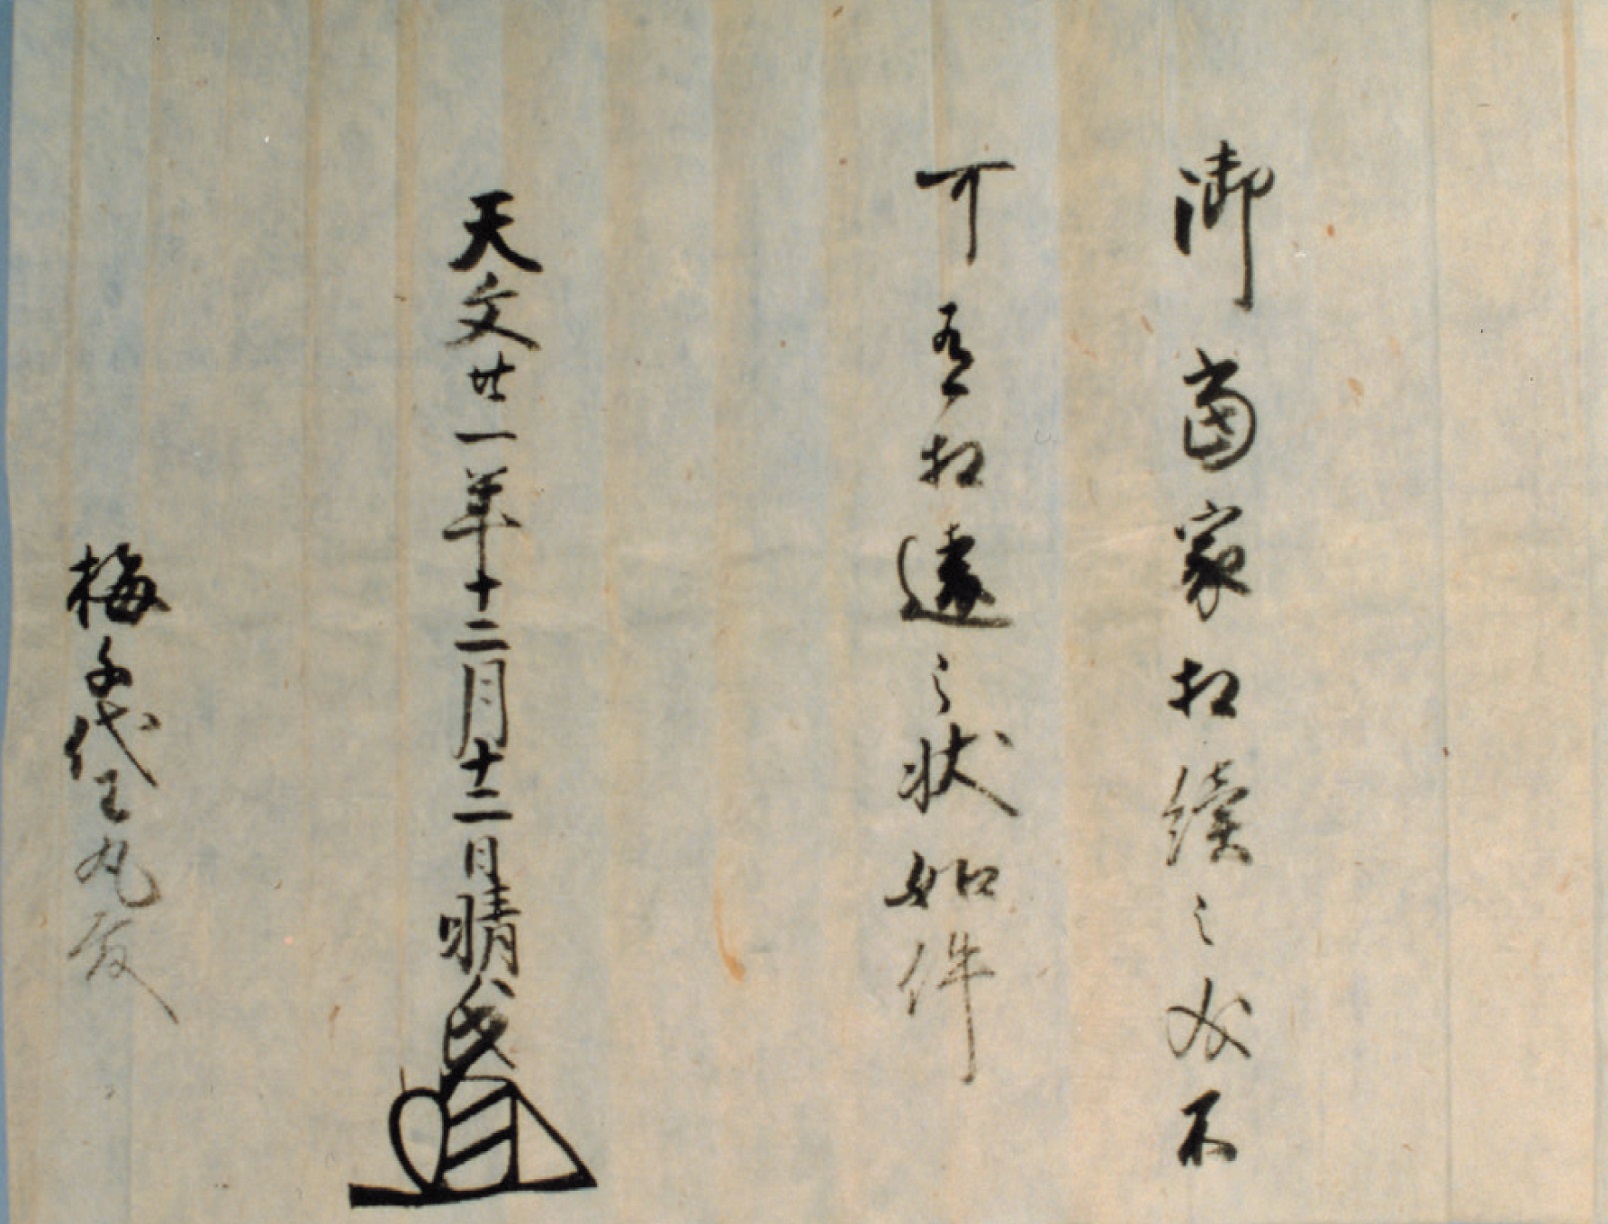 御當家相續之義不
可有相違之状如件
天文廿一年十二月十二日晴氏
梅千代王丸殿